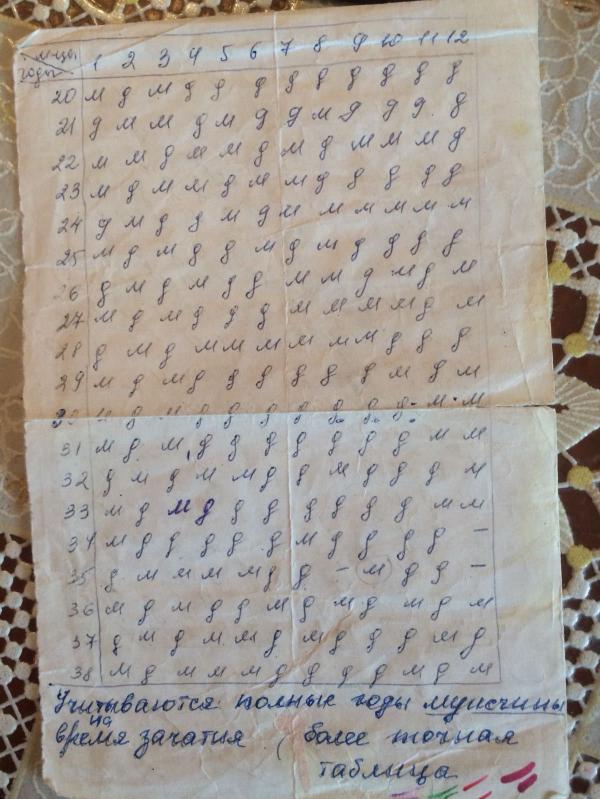 м-цы 1 2 3 4 5 6 7 8 9 10 11 12
годы
20 м д м д д д д д д д д д
21 д м м д м д д м д д д д
22 м м д м м д м д м м м д
23 м д м м д м м д д д д д
24 д м д д м д м м м м м
25 м д м д д м д м д д д д
26 д м д м д д м м д м д м
27 м д м д д д м м м м д м
28 д м д м м м м м м д д д
29 м д м д д д д д д м д м
30 м д м д д д д д д д м м
31 м д м д д д д д д д м м
32 д м д м м д д м д д д м
33 м д м д д д д д д д м м
34 м д д д д д м д д д д –
35 д м м м м д д – м д д –
36 м д м д д м д м д м д м
37 д м д м м д м д д д м д
38 м д м м м д д д д м д м
Учитываются полные годы мужчины
на
время зачатия ( более точная
таблица